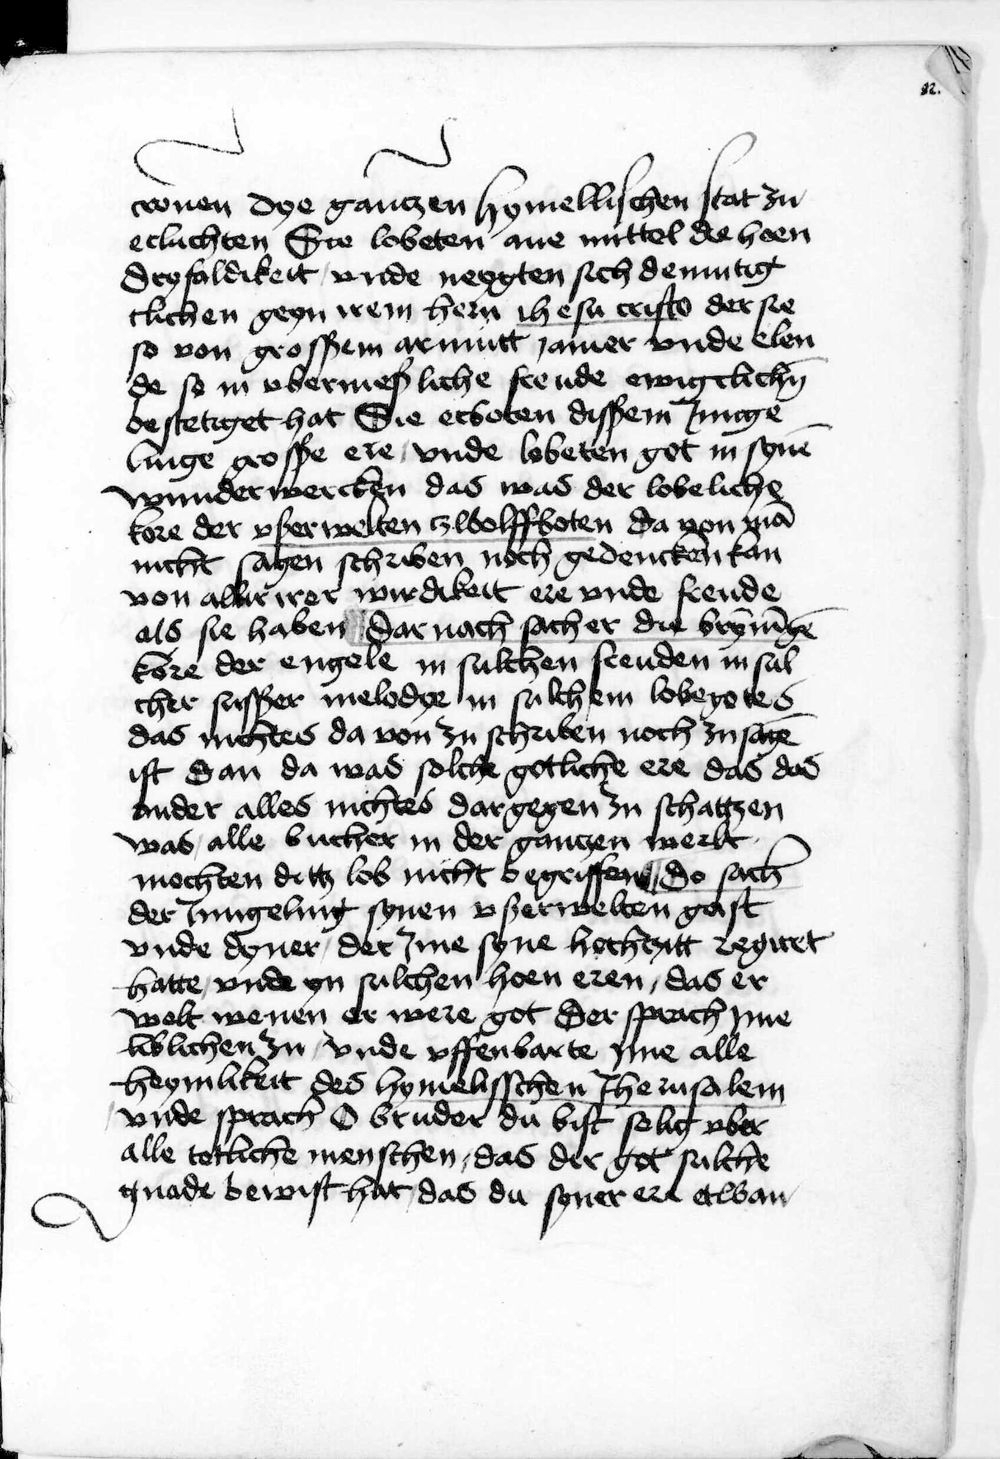 82.
cronen dye gantzen hymellischen stat zu
erluchten Sie lobeten ane mittel die hoen
dryfaldikeit / vnde neygten sich demutig
clichen geyn irem hern ihesu cristo der sie
so von grossem armutt jamer vnde elen
de so in vbermeßliche freude ewigclichē
bestetiget hat Sie erboten dissem Junge
linge grosse ere / vnde lobeten got in synē
wunderwercken das was der lobeliche
kore der vßerwelten zwolffboten da von mā
nicht sagen schriben noch gedencken kan
von aller irer wirdikeit ere vnde freude
als sie haben Dar nach sach er die brynnēde
kore der engele in sulchen freuden in sul
cher susser melodye in sulchem lobe gotes
das nichtes da von zu schriben noch zu sagē
ist Dan da was solche gotliche ere das das
ander alles nichtes dargegen zu schattzen
was / alle bucher in der gantzen werlt
mochten ditz lob nicht begriffen Do sach
der Jungeling synen vßerwelten gast
vnde dyner / der Jme syne hochtzitt regiret
hatte / vnde yn sulchen hoen eren / das er
wolt wenen er were got Der sprach yme
liblichen zu / vnde vffenbarte yme alle
heymlikeit des hymelisschen Jherusalem
vnde sprach O bruder du bist selig vber
alle totliche menschen / das dir got sulche
gnade bewist hat / das du syner ere etwan